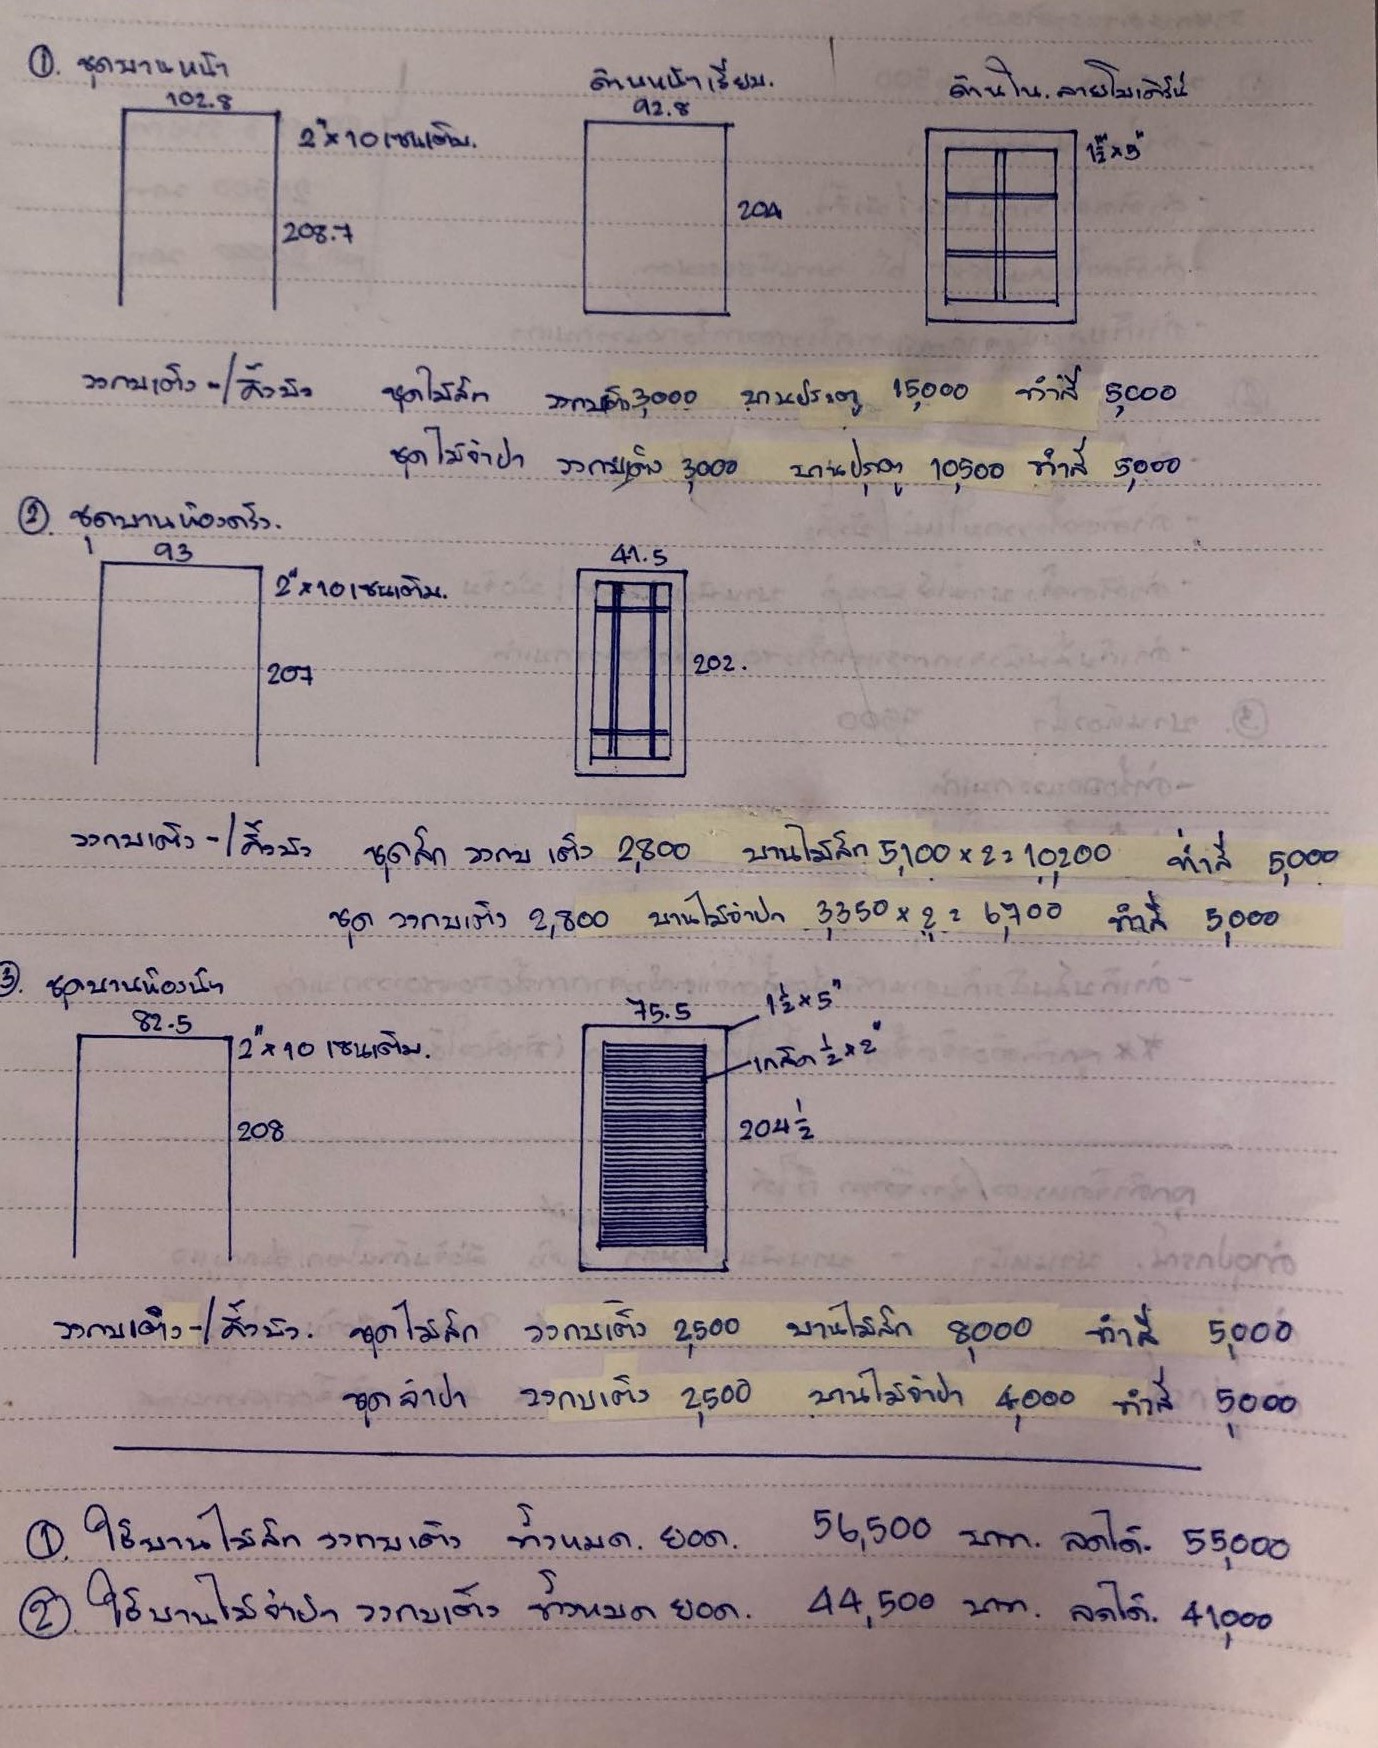 ①. ชุดบานหน้า
102.8
2"×10 เซนเติม.
208.7
ด้านหน้าเรียบ.
92.8
204
ด้านใน. ลายโมเดิร์น
1½"×5"
วงกบเต็ง -/คิ้วบัว ชุดไม้สัก วงกบเต็ง 3,000 บานประตู 15,000 ทำสี 5,000
ชุดไม้จำปา วงกบเต็ง 3,000 บานประตู 10,500 ทำสี 5,000
②. ชุดบานห้องครัว.
93
2"×10 เซนเติม.
207
41.5
202.
วงกบเต็ง -/คิ้วบัว ชุดสัก วงกบ เต็ง 2,800 บานไม้สัก 5,100×2=10,200 ทำสี 5,000
ชุด วงกบเต็ง 2,800 บานไม้จำปา 3,350×2= 6,700 ทำสี 5,000
③. ชุดบานห้องน้ำ
82.5
2"×10 เซนเติม.
208
75.5
1½×5"
เกล็ด ½×2"
204½
วงกบเต็ง -/คิ้วบัว. ชุดไม้สัก วงกบเต็ง 2,500 บานไม้สัก 8,000 ทำสี 5,000
ชุดจำปา วงกบเต็ง 2,500 บานไม้จำปา 4,000 ทำสี 5,000
①. ใช้บานไม้สัก วงกบเต็ง ทั้งหมด. ยอด. 56,500 บาท. ลดได้. 55,000
②. ใช้บานไม้จำปา วงกบเต็ง ทั้งหมด ยอด. 44,500 บาท. ลดได้. 41,000